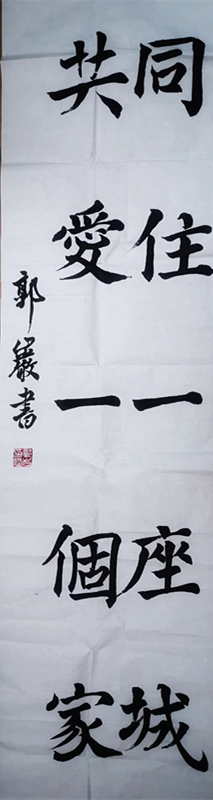 同住一座城
共愛一個家
郭巖書